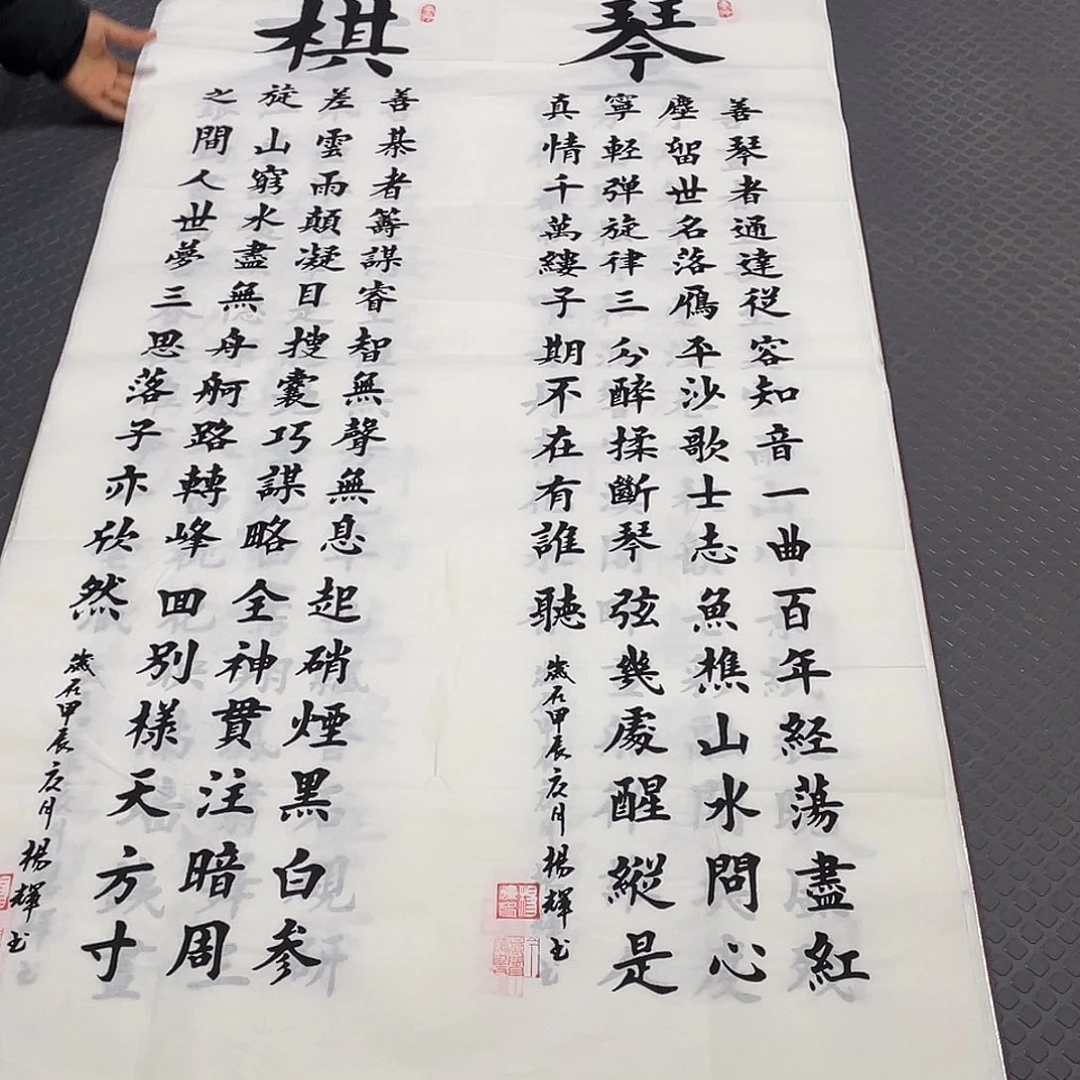 琴
善琴者通達從容知音一曲百年经蕩盡紅
塵留世名落鴈平沙歌士志魚樵山水問心
寧輕弹旋律三分醉揉斷琴弦幾處醒縱是
真情千萬縷子期不在有誰聽
歲在甲辰月楊輝书
棋
善棊者籌謀睿智無聲無息起硝煙黑白参
差雲雨顛凝目搜囊巧謀略全神貫注暗周
旋山窮水盡無舟舸路轉峰囬別樣天方寸
之間人世夢三思落子亦欣然
歲在甲辰月楊輝书